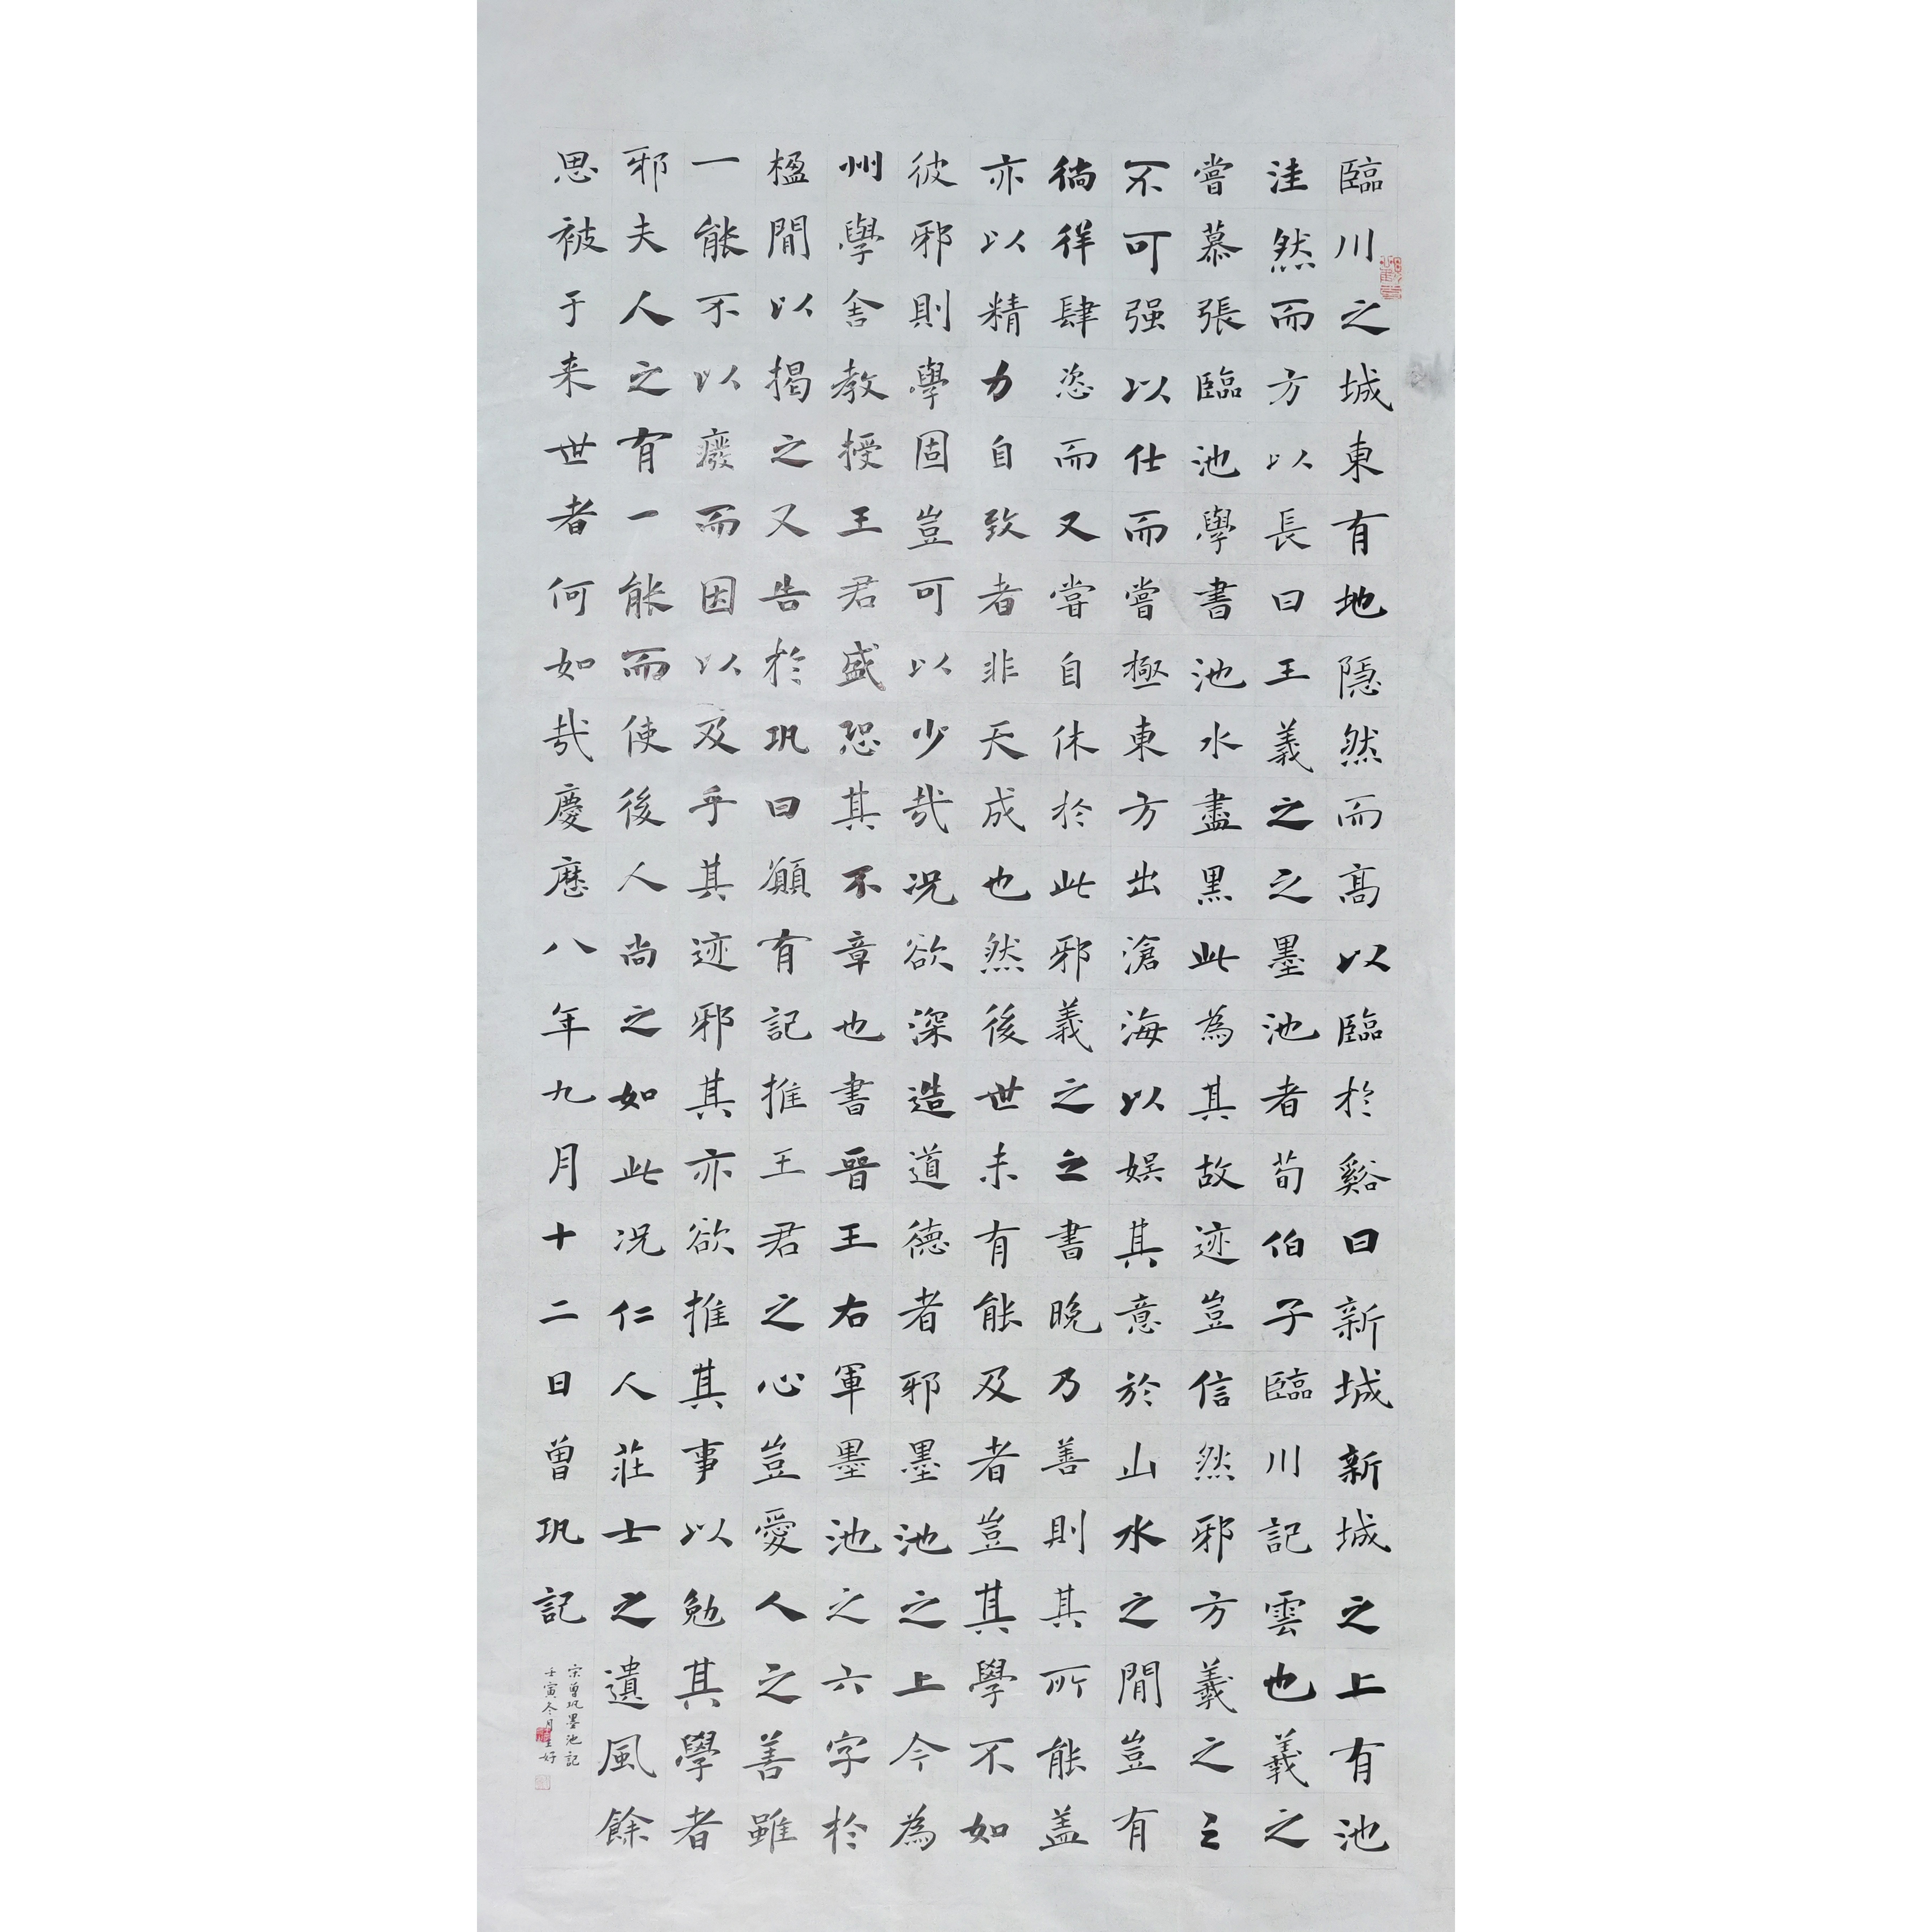 臨川之城東有地隱然而高以臨於谿曰新城新城之上有池
洼然而方以長曰王羲之之墨池者荀伯子臨川記雲也羲之
嘗慕張臨池學書池水盡黑此為其故迹豈信然邪方羲之之
不可强以仕而嘗極東方出滄海以娱其意於山水之間豈有
徜徉肆恣而又嘗自休於此邪羲之之書晚乃善則其所能盖
亦以精力自致者非天成也然後世未有能及者豈其學不如
彼邪則學固豈可以少哉况欲深造道德者邪墨池之上今為
州學舍教授王君盛恐其不章也書晉王右軍墨池之六字於
楹間以揭之又告於巩曰願有記推王君之心豈愛人之善雖
一能不以廢而因以及乎其迹邪其亦欲推其事以勉其學者
邪夫人之有一能而使後人尚之如此况仁人莊士之遺風餘
思被于来世者何如哉慶歷八年九月十二日曾巩記
宗曾巩墨池記
壬寅冬月王好